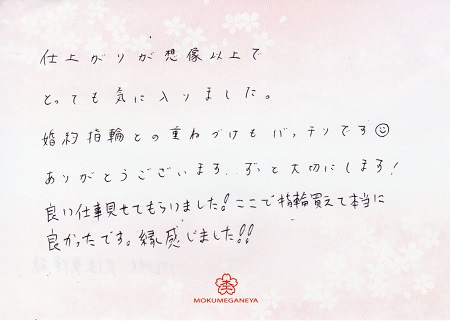 仕上がりが想像以上で
とっても気に入りました。
婚約指輪との重ねづけもバッチリです☺
ありがとうございます。ずっと大切にします!
良い仕事見せてもらいました!ここで指輪買えて本当に
良かったです。縁感じました!!
MOKUMEGANEYA